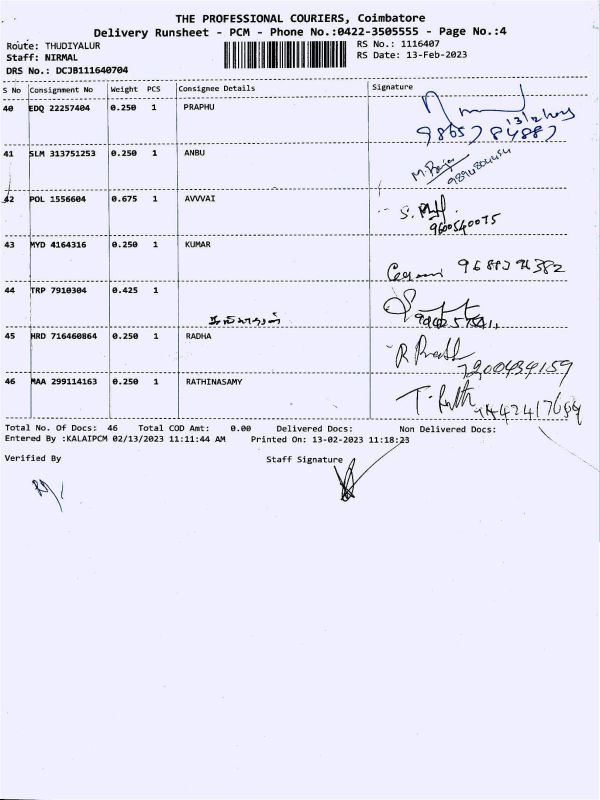 THE PROFESSIONAL COURIERS, Coimbatore
Delivery Runsheet - PCM - Phone No.:0422-3505555 - Page No.:4
Route: THUDIYALUR
RS No.: 1116407
Staff: NIRMAL
RS Date: 13-Feb-2023
DRS No.: DCJB111640704
S No Consignment No Weight PCS Consignee Details Signature
40 EDQ 22257404 0.250 1 PRAPHU
13/2/2023
9865784887
41 SLM 313751253 0.250 1 ANBU
9894804454
42 POL 1556604 0.675 1 AVVVAI
9600540075
43 MYD 4164316 0.250 1 KUMAR
44 TRP 7910304 0.425 1
45 HRD 716460864 0.250 1 RADHA
7200434159
46 MAA 299114163 0.250 1 RATHINASAMY
Total No. Of Docs: 46 Total COD Amt: 0.00 Delivered Docs: Non Delivered Docs:
Entered By :KALAIPCM 02/13/2023 11:11:44 AM Printed On: 13-02-2023 11:18:23
Verified By Staff Signature